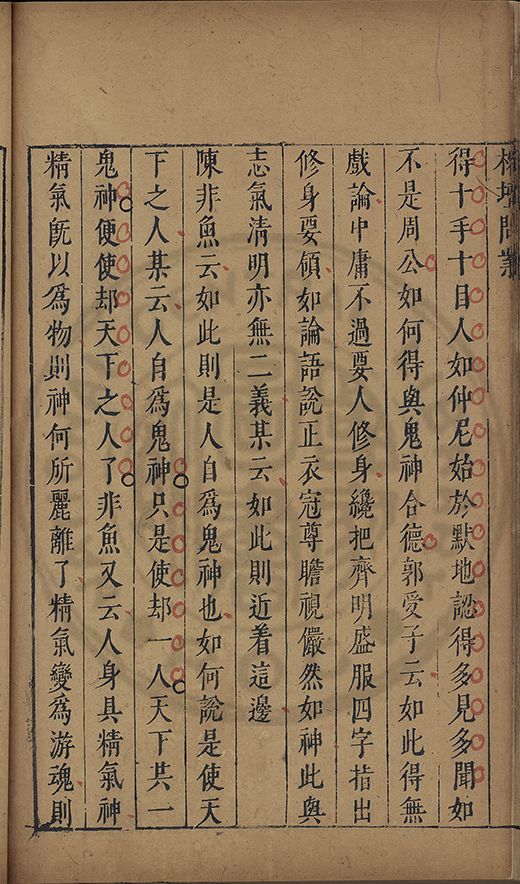 榕壇問業
得十手十目人如仲尼始於默地認得多見多聞如
不是周公如何得與鬼神合德郭受子云如此得無
戲論中庸不過要人修身纔把齊明盛服四字指出
修身要領如論語說正衣冠尊瞻視儼然如神此與
志氣清明亦無二義某云如此則近着這邊
陳非魚云如此則是人自爲鬼神也如何說是使天
下之人某云人自爲鬼神只是使却一人天下共一
鬼神便使却天下之人了非魚又云人身具精氣神
精氣旣以爲物則神何所麗離了精氣變爲游魂則